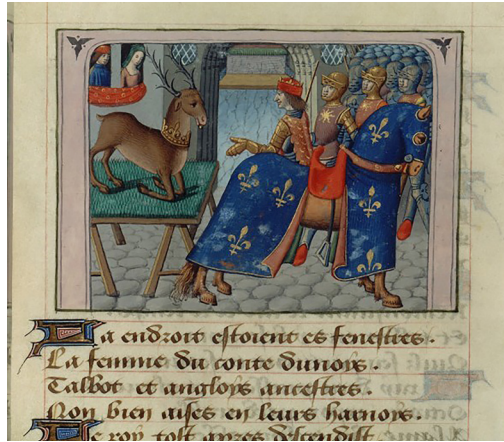 La endroit estoient es fenestres.
La femme du conte dunoys.
Talbot et angloys ancestres.
Non bien aises en leurs harnois.
Le roy tost apres descendist